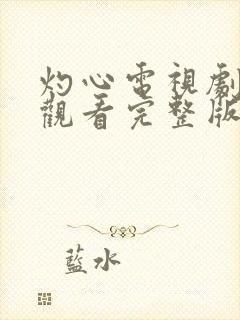 灼心電視劇
觀看完整版
藍水